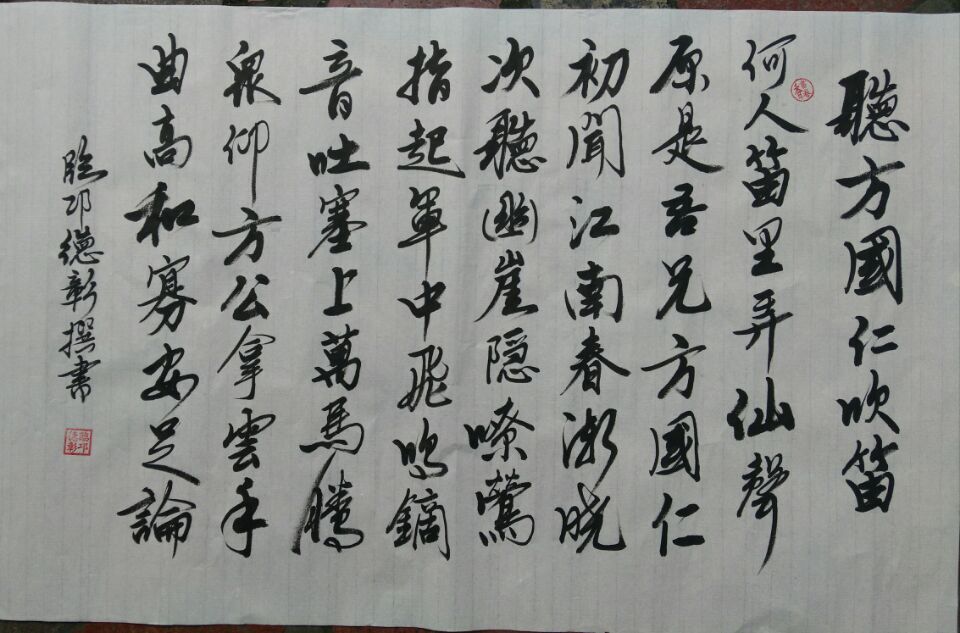 聽方國仁吹笛
何人笛里弄仙聲
原是吾兄方國仁
初聞江南春漸曉
次聽幽崖隐嘹鶯
指起軍中飛鸣鏑
音吐塞上萬馬騰
泉仰方公拿雲手
曲高和寡安足論
臨邛德彰撰書
臨邛德彰